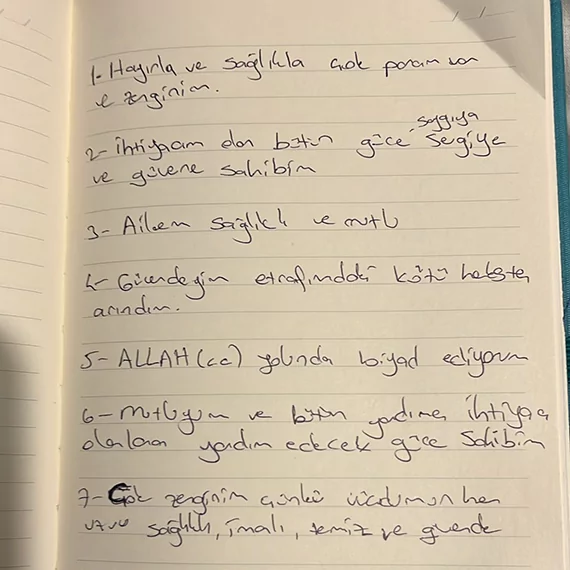 1- Hayırla ve sağlıkla çok param var
ve zenginim.
saygıya
2- ihtiyacım olan bütün güce sevgiye
ve güvene sahibim
3- Ailem sağlıklı ve mutlu
4- Güvendeyim etrafımdaki kötü
arındım.
5- ALLAH (cc) yolunda ediyorum
6- mutluyum ve bütün yardıma ihtiyacı
olanlara yardım edecek güce sahibim
7- Çok zenginim çünkü vücudumun her
uzvu sağlıklı, imalı, temiz ve güvende